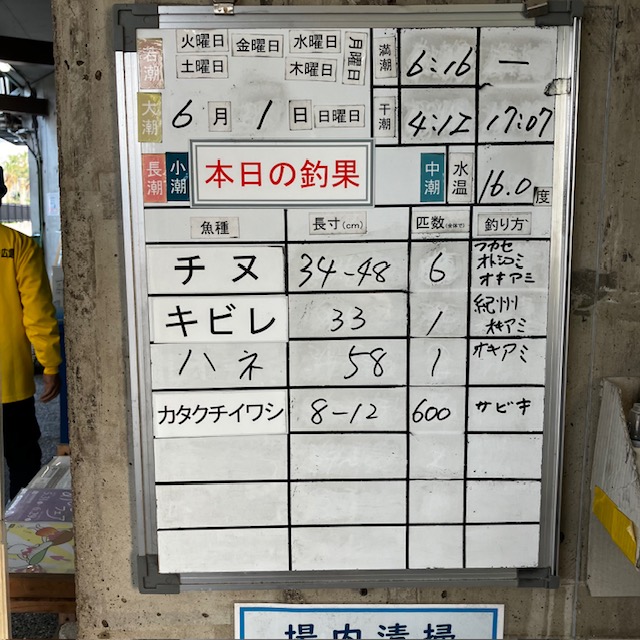 若潮 火曜日 金曜日 水曜日 月曜日 満潮 6:16 ー
土曜日 木曜日
大潮 6月1日 日曜日 干潮 4:12 17:07
長潮 小潮 本日の釣果 中潮 水温 16.0度
魚種 長寸(cm) 匹数(全体で) 釣り方
チヌ 34-48 6 フカセ
オトシコミ
オキアミ
キビレ 33 1 紀州
オキアミ
ハネ 58 1 オキアミ
カタクチイワシ 8-12 600 サビキ
場内清掃